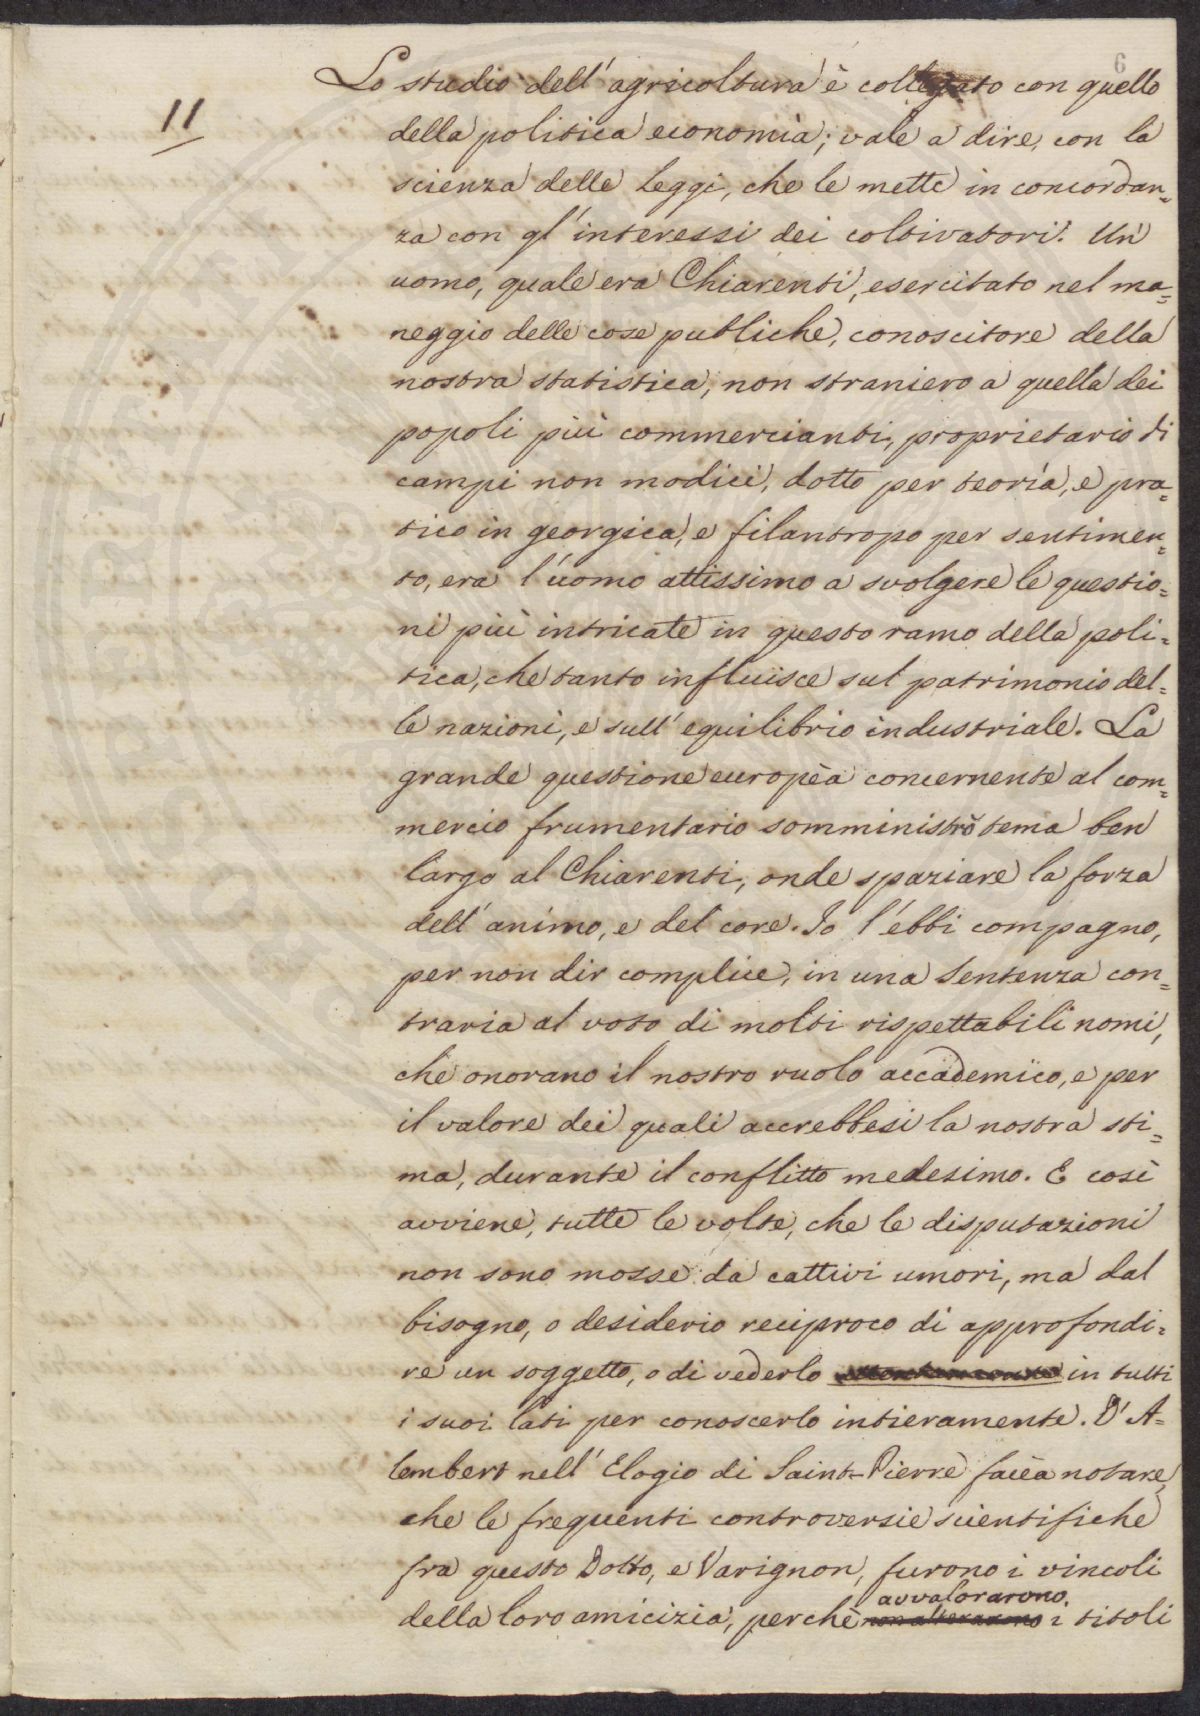 6
11
Lo studio dell' agricoltura è collegato con quello
della politica economia; vale a dire, con la
scienza delle Leggi, che le mette in concordan=
za con gl' interessi dei coltivatori. Un
uomo, quale era Chiarenti, esercitato nel ma=
neggio delle cose pubbliche, conoscitore della
nostra statistica, non straniero a quella dei
popoli più commercianti, proprietario di
campi non modici, dotto per teoria, e pra=
tico in georgica, e filantropo per sentimen=
to, era l'uomo attissimo a svolgere le questio=
ni più intricate in questo ramo della poli=
tica, che tanto influisce sul patrimonio del=
le nazioni, e sull' equilibrio industriale. La
grande questione europèa concernente al com=
mercio frumentario somministrò tema ben
largo al Chiarenti, onde spaziare la forza
dell' animo, e del core. Io l'ebbi compagno,
per non dir complice, in una Sentenza con=
traria al voto di molti rispettabili nomi,
che onorano il nostro ruolo accademico, e per
il valore dei quali accrebbesi la nostra sti=
ma, durante il conflitto medesimo. E così
avviene, tutte le volte, che le disputazioni
non sono mosse da cattivi umori, ma dal
bisogno, o desiderio reciproco di approfondi=
re un soggetto, o di vederlo in tutti
i suoi lati per conoscerlo intieramente. D' A=
lembert nell' Elogio di Saint=Pierre facèa notare,
che le frequenti controversie scientifiche
fra questo Dotto, e Varignon, furono i vincoli
avvalorarono
della loro amicizia, perchè non alterarono i titoli